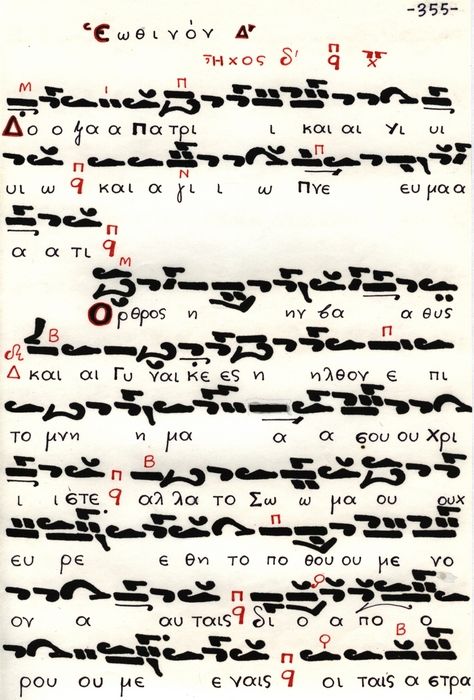 -355-
Ἑωθινόν Δ'
Ἦχος δ' π q
Δο ο ξα α Πα τρι ι και αι Υι υι
υι ω π q και α γι ι ω Πνε ευ μα α
α α τι π q
Ο ρθρος η ην βα α θυς
Δ και αι Γυ ναι κε ες η ηλθον ε πι
το μνη η μα α α σου ου Χρι
ι ι στε π q αλ λα το Σω ω μα ου ουχ
ευ ρε ε θη το πο θου ου με νο
ον α αυ ταις π q δι ο α πο ο
ρου ου με ε ναις π q οι ταις α στρα